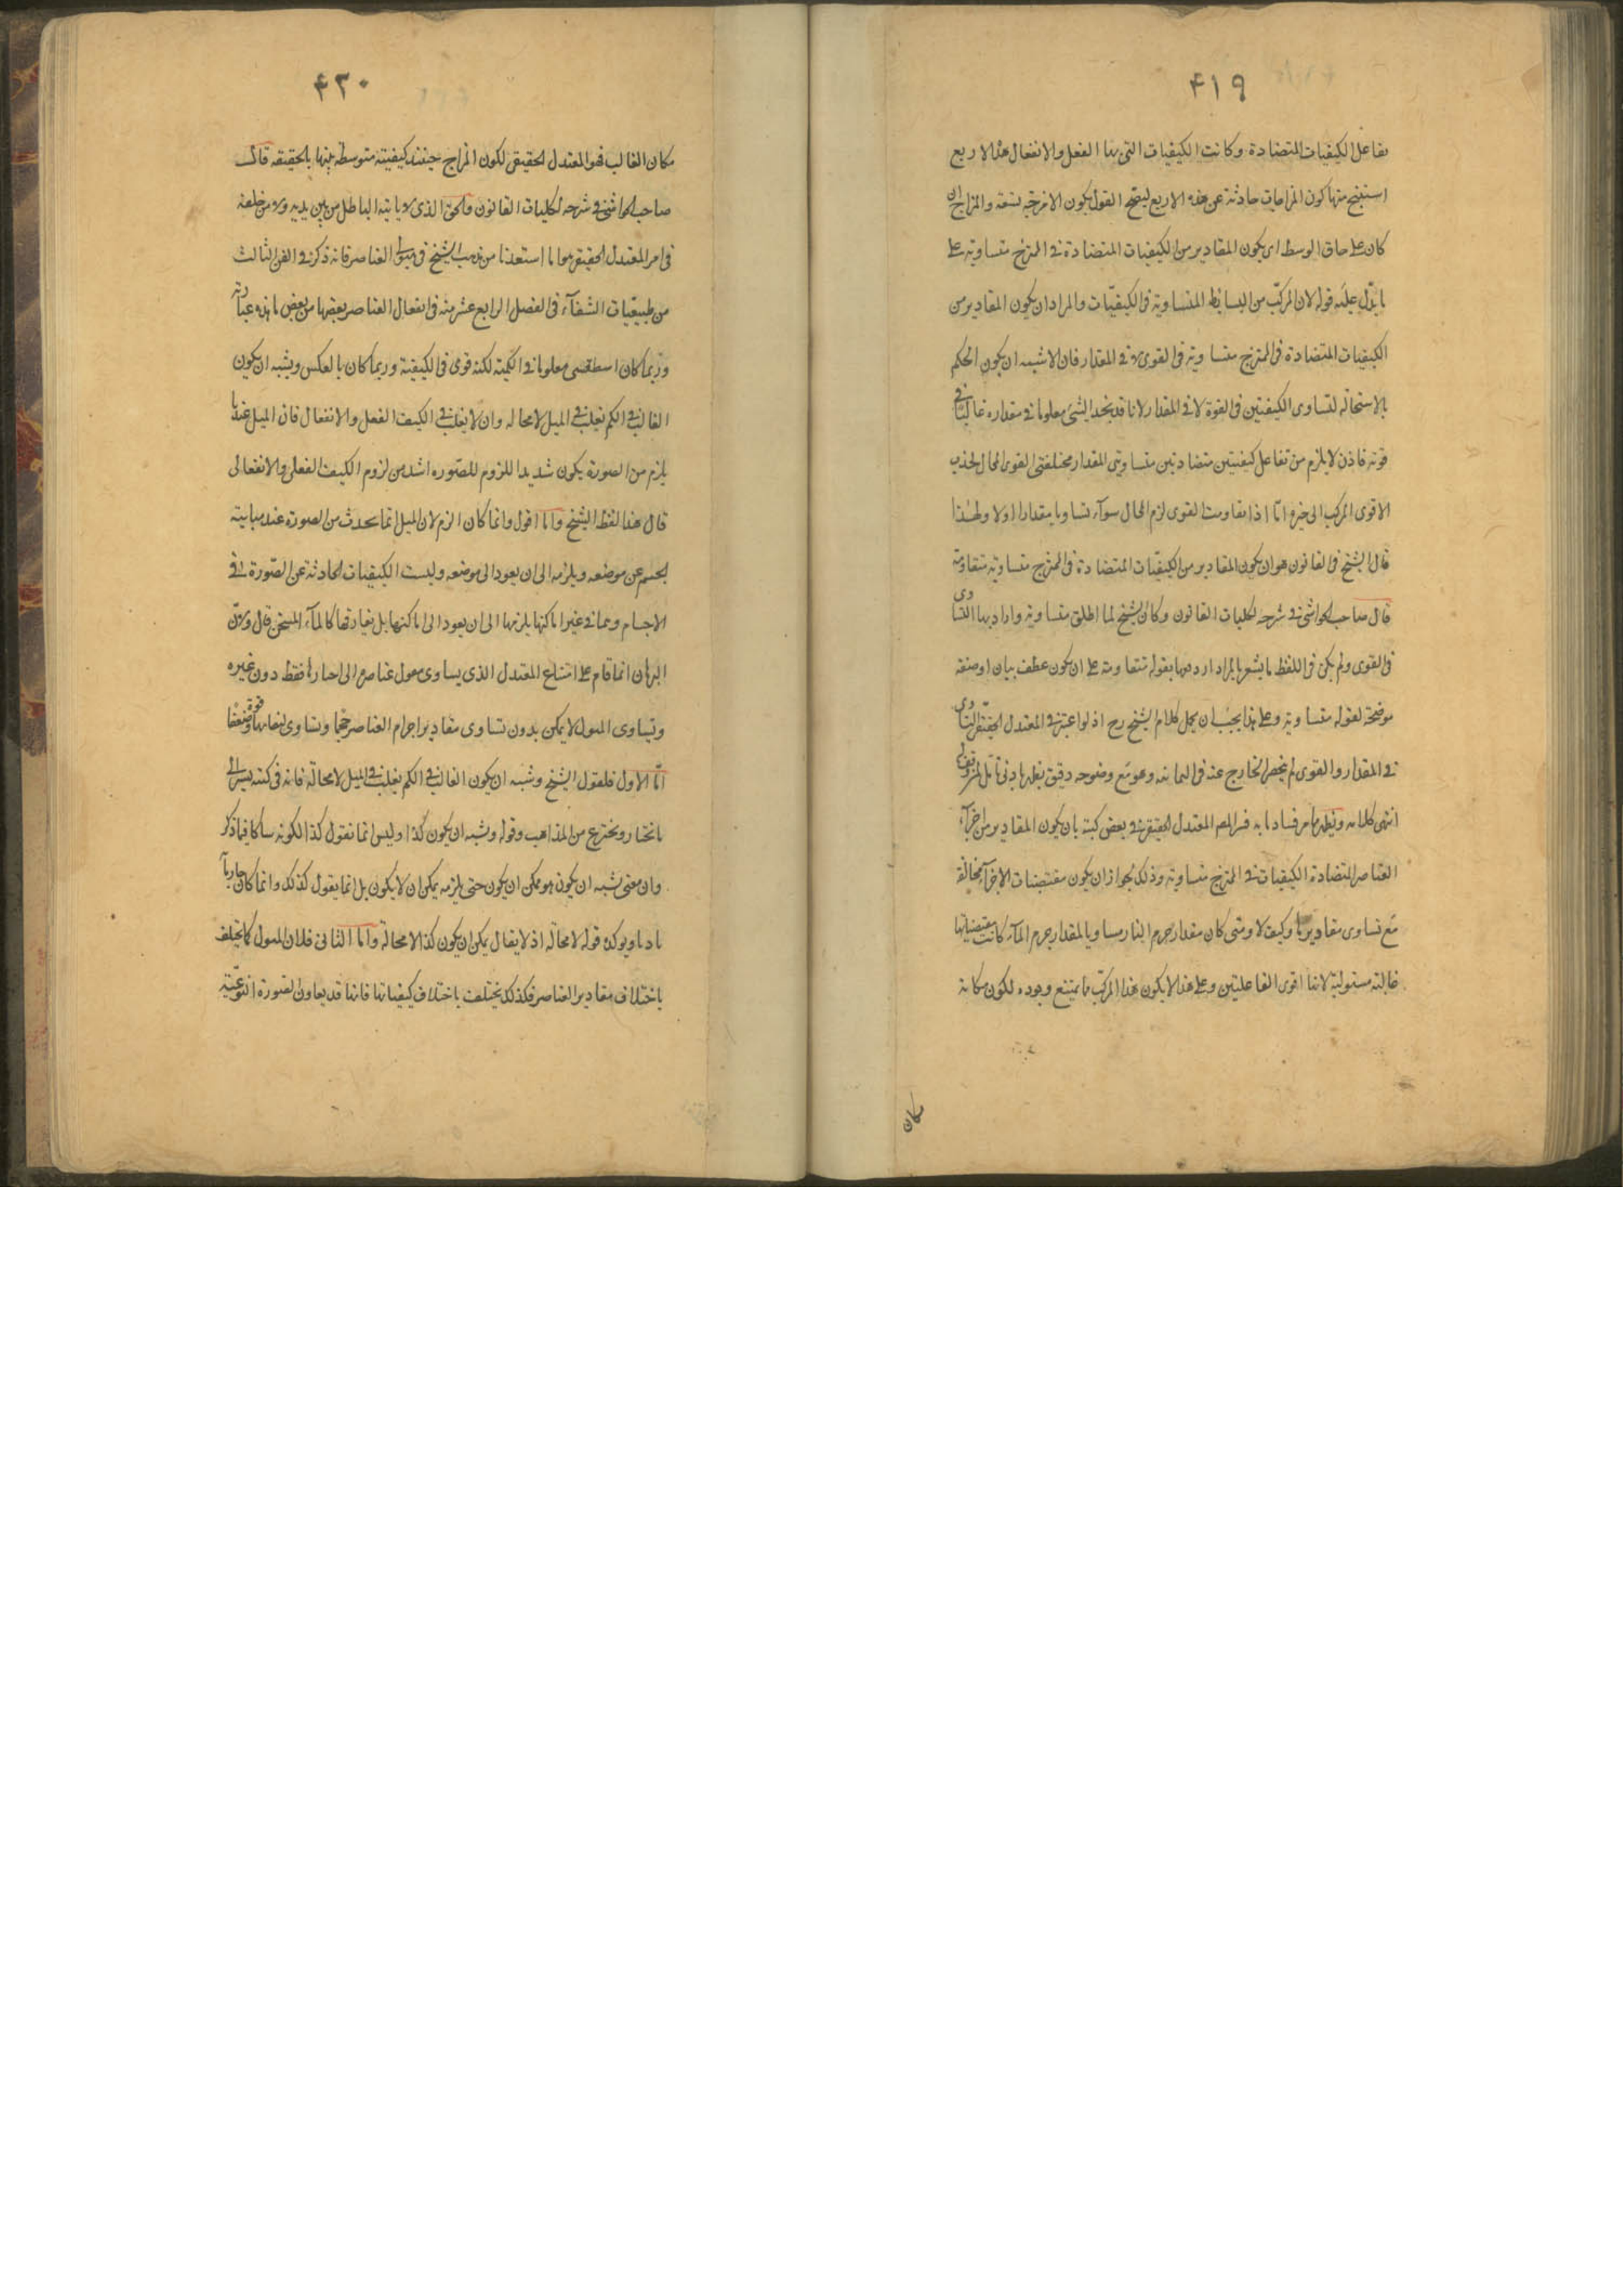 ۴۱۹
تفاعل الكيفيات المتضادة وكانت الكيفيات التى بها الفعل والانفعال هذه الاربع
استنتج منها كون المزاجات حادثة عن هذه الاربع ليتجه القول بكون الامزجة تسعة والمزاج ان
كان على حاق الوسط اى يكون المقادير من الكيفيات المتضادة فى الممتزج متساوية على
ما يدل عليه قوله لان المركب من البسايط المتساوية فى الكيفيات والمراد ان يكون المقادير من
الكيفيات المتضادة فى الممتزج متساوية فى القوى لا فى المقدار فان الاشبه ان يكون الحكم
بالاستحالة لتساوى الكيفيتين فى القوة لا فى المقدار لانا قد نجد الشئ مغلوبا فى مقداره غالبا فى
قوته فاذن لا يلزم من تفاعل كيفيتين متضادتين متساويتى المقدار مختلفتى القوى المحال لجذب
الاقوى المركب الى حيزه اما اذا تقاومت القوى لزم المحال سوآء تساويا مقدارا اولا ولهذا
قال الشيخ فى القانون هو ان يكون المقادير من الكيفيات المتضادة فى الممتزج متساوية متقاومة
قال صاحب الحواشى فى شرحه لكليات القانون وكان الشيخ لما اطلق متساوية واراد بها التساوى
فى القوى ولم يكن فى اللفظ ما يشعر بالمراد اردفها بقوله متقاومة على ان يكون عطف بيان او صفة
موضحة لقوله متساوية وعلى هذا يجب ان يحمل كلام الشيخ رح اذ لو اعتبر فى المعتدل الحقيقى التساوى
فى المقدار والقوى لم ينحصر الخارج عنه فى الثمانية وهو مع وضوحه دقيق يظهر بادنى تامل
انتهى كلامه ويظهر مما مر فساد ما به فسر المص المعتدل الحقيقى فى بعض كتبه بان يكون المقادير من اجزآء
العناصر المتضادة الكيفيات فى الممتزج متساوية وذلك لجواز ان يكون مقتضيات الاجزآء متخالفة
مع تساوى مقاديرها وكيف لا ومتى كان مقدار جرم النار مساويا لمقدار جرم المآء كانت مقتضياتها
غالبة مستولية لانها اقوى الفاعلتين وعلى هذا لا يكون هذا المركب مما يمتنع وجوده لكون مكانه
مكان
۴۲۰
مكان الغالب فهو المعتدل الحقيقى لكون المزاج حينئذ كيفية متوسطة بينها بالحقيقة قال
صاحب الحواشى فى شرحه لكليات القانون والحق الذى لا ياتيه الباطل من بين يديه ولا من خلفه
فى امر المعتدل الحقيقى هو ما استفدنا من مذهب الشيخ فى ميول العناصر فانه ذكر فى الفن الثالث
من طبيعيات الشفآء فى الفصل الرابع عشر منه فى انفعال العناصر بعضها من بعض ما هذه عبارته
وربما كان اسطقس مغلوبا فى الكمية لكنه قوى فى الكيفية وربما كان بالعكس ويشبه ان يكون
الغالب فى الكم يغلب فى الميل لا محاله وان لا يغلب فى الكيف الفعل والانفعال فان الميل عندنا
يلزم من الصورة يكون شديدا للزوم للصوره اشد من لزوم الكيف الفعلى والانفعالى
قال هذا لفظ الشيخ وانا اقول وانما كان الزم لان الميل انما يحدث من الصورة عند مباينة
الجسم عن موضعه ويلزمه الى ان يعود الى موضعه وليست الكيفيات الحادثة عن الصورة فى
الاجسام وهما فى غير اماكنها يلزمها الى ان يعود الى اماكنها بل يفارقها كالمآء المسخن قال ولان
البرهان انما قام على امتناع المعتدل الذى يساوى ميول عناصره الى احيازها فقط دون غيره
وتساوى الميول لا يمكن بدون تساوى مقادير اجرام العناصر حجما وتساوى كيفياتها قوة وضعفا
اما الاول فلقول الشيخ ويشبه ان يكون الغالب فى الكم يغلب فى الميل لا محالة فانه فى كتبه يشير الى
ما يختار ويخترع من المذاهب وقوله ويشبه ان يكون كذا وليس انما نقول كذا لكونه ساكا فيما ذكر
وان معنى يشبه ان يكون هو ممكن ان يكون حتى يلزمه يمكن ان لا يكون بل انما يقول كذلك وانما كان
ويوكده قوله لا محالة اذ لا يقال يمكن ان يكون كذا لا محالة واما الثانى فلان الميول كما يختلف
باختلاف مقادير العناصر فكذلك يختلف باختلاف كيفياتها فانها قد يعاون الصورة النوعية